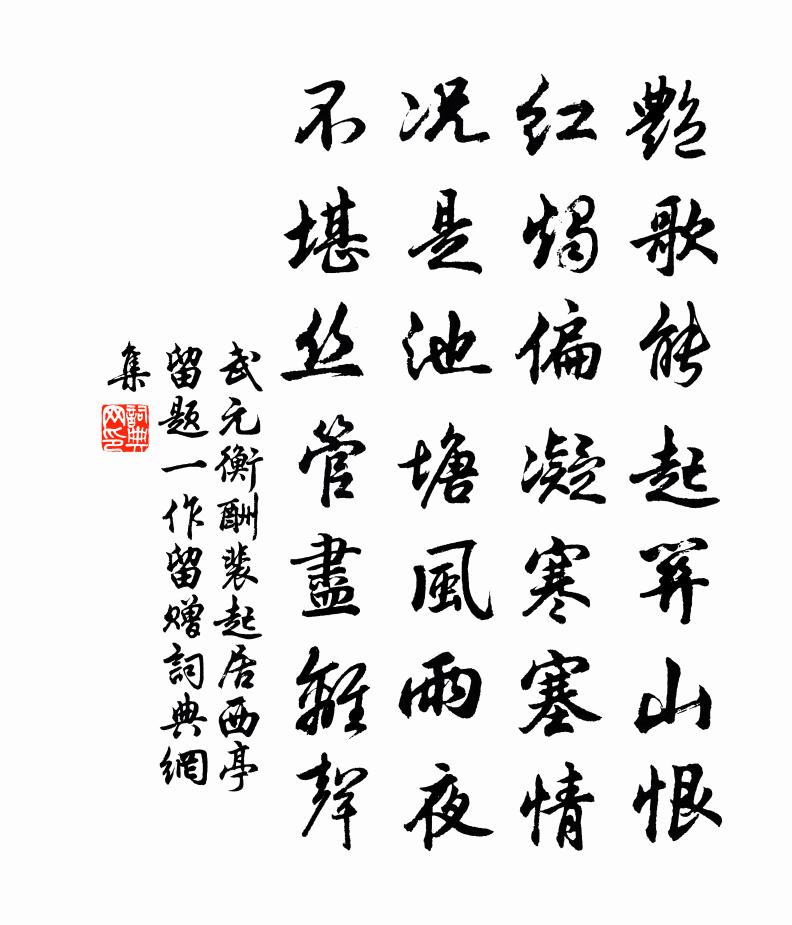 艷歌能起關山恨
紅燭偏凝寒塞情
况是池塘風雨夜
不堪丝管盡離聲
武元衡酬裴起居西亭
留题一作留贈詞典網
集
詞典
网印